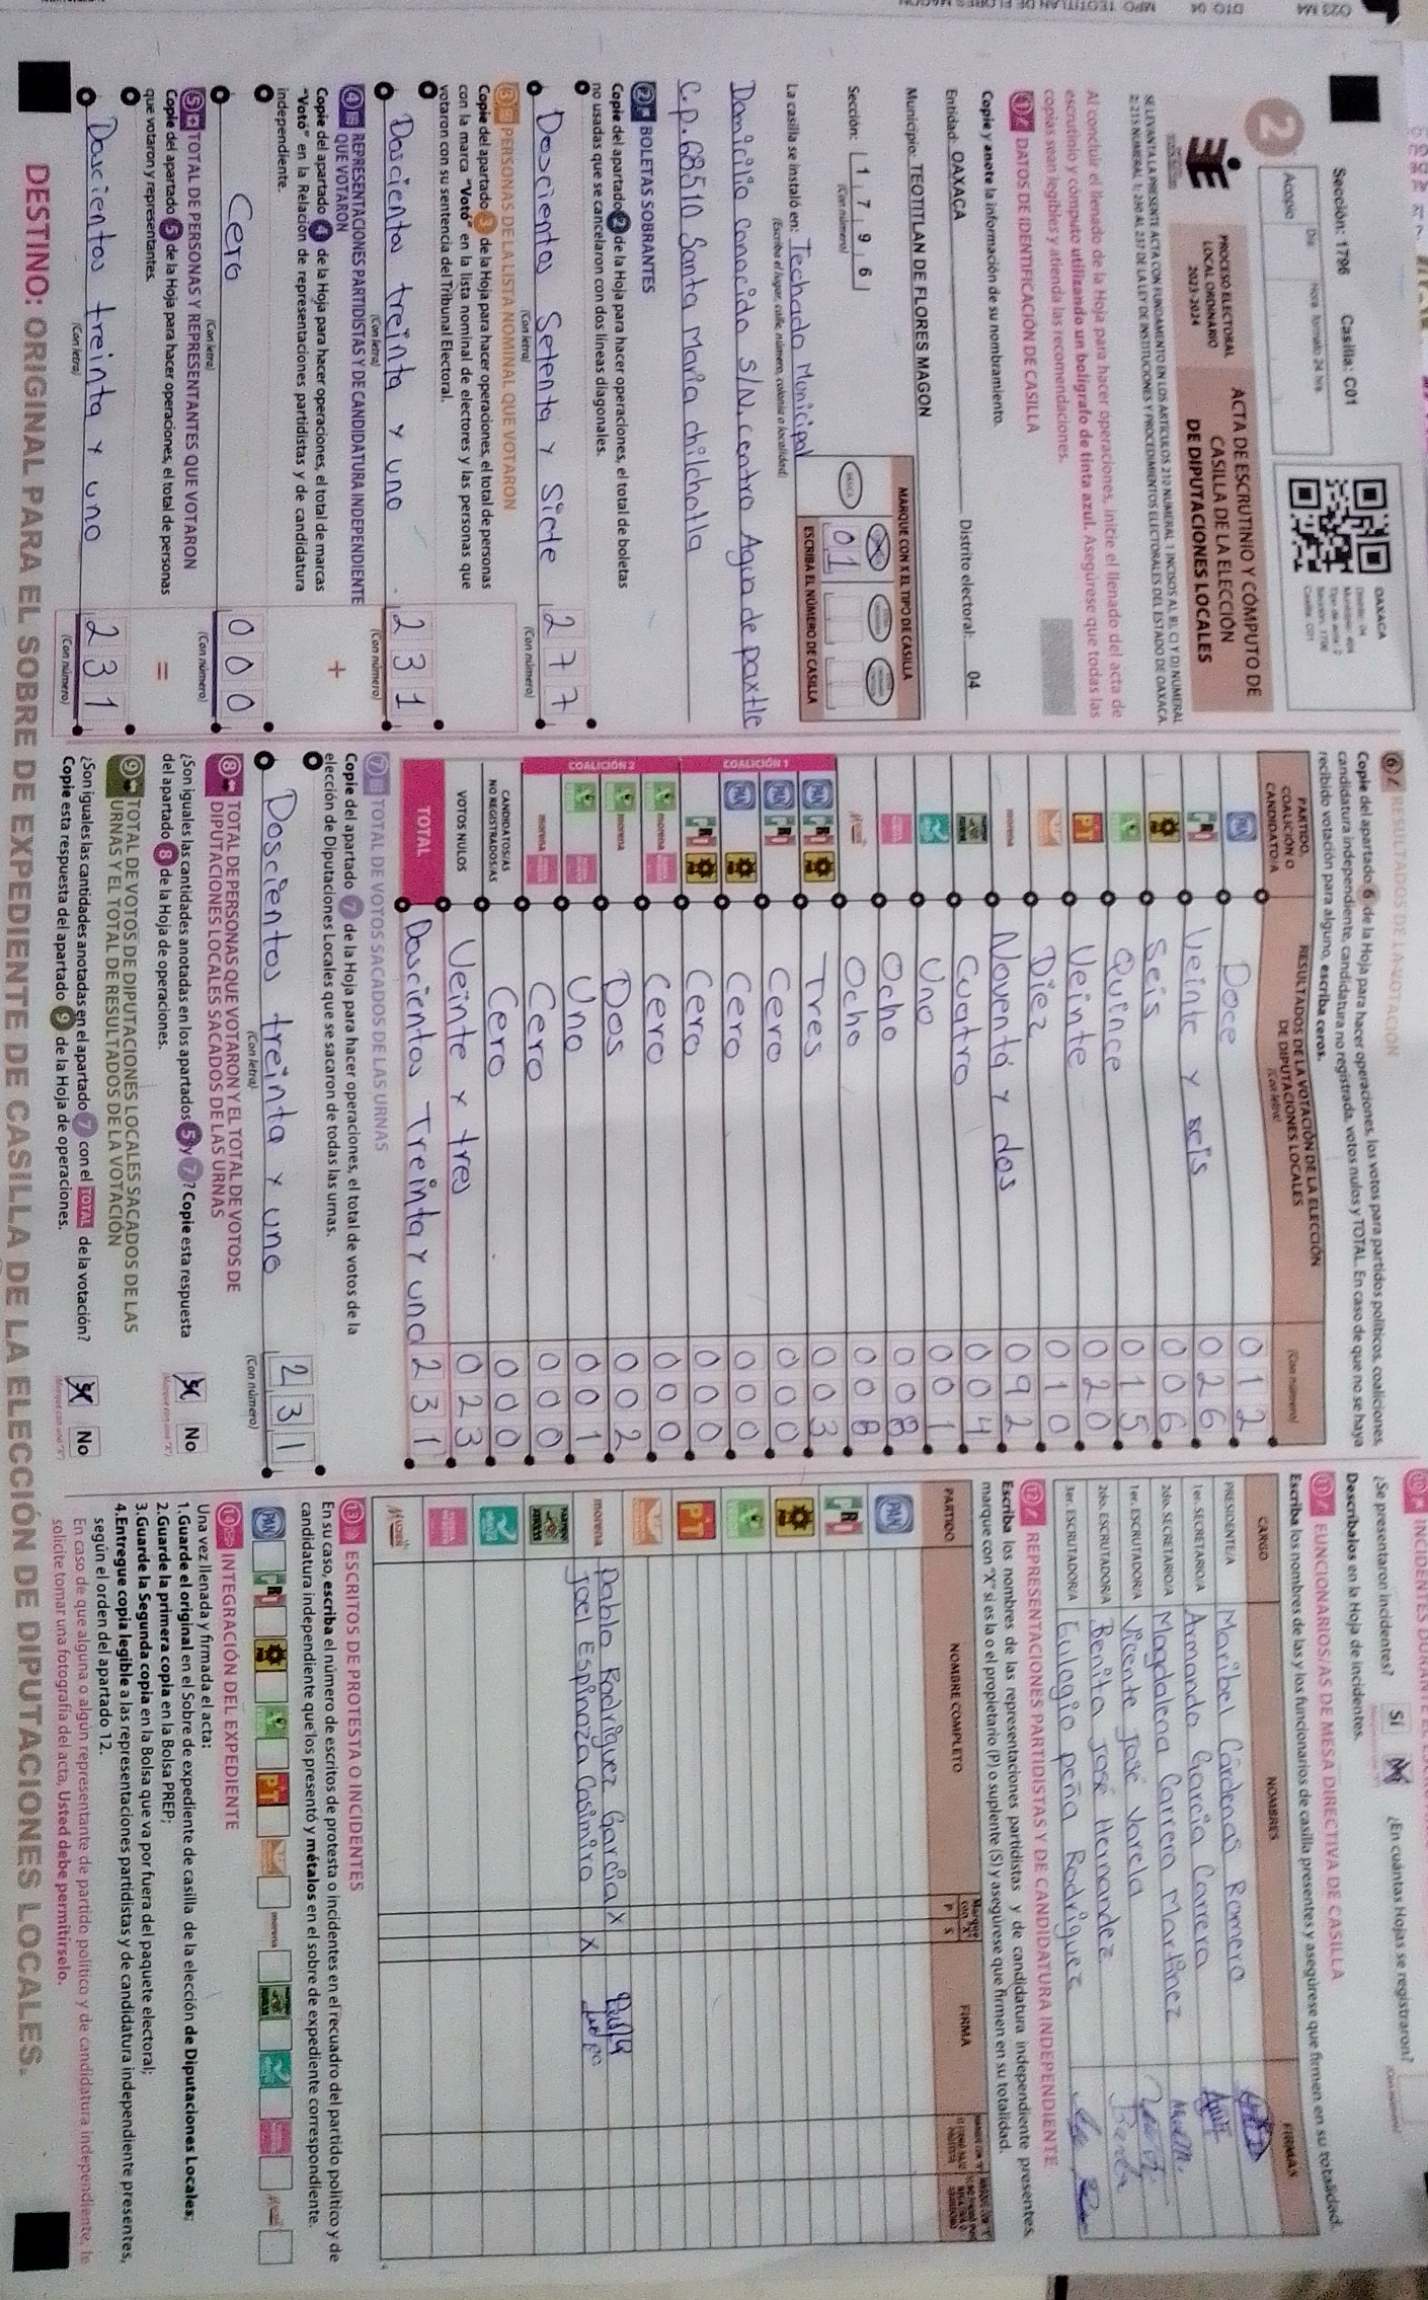 Sección: 1796 Casilla: C01
OAXACA
2
Acopio
Día
Hora formato 24 hrs.
PROCESO ELECTORAL
LOCAL ORDINARIO
2023-2024
ACTA DE ESCRUTINIO Y CÓMPUTO DE
CASILLA DE LA ELECCIÓN
DE DIPUTACIONES LOCALES
SE LEVANTA LA PRESENTE ACTA CON FUNDAMENTO EN LOS ARTÍCULOS 210 NUMERAL 1 INCISOS A), B), C) Y D) NUMERAL
2; 215 NUMERAL 1; 230 AL 237 DE LA LEY DE INSTITUCIONES Y PROCEDIMIENTOS ELECTORALES DEL ESTADO DE OAXACA.
Al concluir el llenado de la Hoja para hacer operaciones, inicie el llenado del acta de
escrutinio y cómputo utilizando un bolígrafo de tinta azul. Asegúrese que todas las
copias sean legibles y atienda las recomendaciones.
1 DATOS DE IDENTIFICACIÓN DE CASILLA
Copie y anote la información de su nombramiento.
Entidad: OAXACA Distrito electoral: 04
Municipio: TEOTITLAN DE FLORES MAGON
MARQUE CON X EL TIPO DE CASILLA
Sección: 1 7 9 6
(Con número)
BÁSICA
01
ESCRIBA EL NÚMERO DE CASILLA
La casilla se instaló en: Techado Municipal
(Escriba el lugar, calle, número, colonia o localidad)
Domicilio conocido S/N. centro Agua de paxtle
C.p. 68510 Santa María chilchotla
2 BOLETAS SOBRANTES
Copie del apartado 2 de la Hoja para hacer operaciones, el total de boletas
no usadas que se cancelaron con dos líneas diagonales.
Doscientos Setenta y Siete 277
(Con letra) (Con número)
3 PERSONAS DE LA LISTA NOMINAL QUE VOTARON
Copie del apartado 3 de la Hoja para hacer operaciones, el total de personas
con la marca "Votó" en la lista nominal de electores y las personas que
votaron con su sentencia del Tribunal Electoral.
Doscientos treinta y uno 231
(Con letra) (Con número)
4 REPRESENTACIONES PARTIDISTAS Y DE CANDIDATURA INDEPENDIENTE
QUE VOTARON
+
Copie del apartado 4 de la Hoja para hacer operaciones, el total de marcas
"Votó" en la Relación de representaciones partidistas y de candidatura
independiente.
Cero 000
(Con letra) (Con número)
5 TOTAL DE PERSONAS Y REPRESENTANTES QUE VOTARON
=
Copie del apartado 5 de la Hoja para hacer operaciones, el total de personas
que votaron y representantes.
Doscientos treinta y uno 231
(Con letra) (Con número)
6 RESULTADOS DE LA VOTACIÓN
Copie del apartado 6 de la Hoja para hacer operaciones, los votos para partidos políticos, coaliciones,
candidatura independiente, candidatura no registrada, votos nulos y TOTAL. En caso de que no se haya
recibido votación para alguno, escriba ceros.
PARTIDO, COALICIÓN O CANDIDATO/A
RESULTADOS DE LA VOTACIÓN DE LA ELECCIÓN DE DIPUTACIONES LOCALES
(Con letra) (Con número)
PAN Doce 012
PRI Veinte y seis 026
PRD Seis 006
Quince 015
PT Veinte 020
Diez 010
morena Noventa y dos 092
Cuatro 004
Uno 001
Ocho 008
Ocho 008
COALICIÓN 1
PAN PRI PRD Tres 003
PAN PRI Cero 000
PAN PRD Cero 000
PRI PRD Cero 000
COALICIÓN 2
morena Cero 000
morena Dos 002
Uno 001
morena Cero 000
CANDIDATOS/AS NO REGISTRADOS/AS Cero 000
VOTOS NULOS Veinte y tres 023
TOTAL Doscientos Treinta y uno 231
7 TOTAL DE VOTOS SACADOS DE LAS URNAS
Copie del apartado 7 de la Hoja para hacer operaciones, el total de votos de la
elección de Diputaciones Locales que se sacaron de todas las urnas.
Doscientos treinta y uno 231
(Con letra) (Con número)
8 TOTAL DE PERSONAS QUE VOTARON Y EL TOTAL DE VOTOS DE
DIPUTACIONES LOCALES SACADOS DE LAS URNAS
¿Son iguales las cantidades anotadas en los apartados 5 y 7? Copie esta respuesta
del apartado 8 de la Hoja de operaciones.
No
9 TOTAL DE VOTOS DE DIPUTACIONES LOCALES SACADOS DE LAS
URNAS Y EL TOTAL DE RESULTADOS DE LA VOTACIÓN
¿Son iguales las cantidades anotadas en el apartado 7 con el TOTAL de la votación?
Copie esta respuesta del apartado 9 de la Hoja de operaciones.
No
¿Se presentaron incidentes? Sí ¿En cuántas Hojas se registraron?
Descríbalos en la Hoja de incidentes.
11 FUNCIONARIOS/AS DE MESA DIRECTIVA DE CASILLA
Escriba los nombres de las y los funcionarios de casilla presentes y asegúrese que firmen en su totalidad.
CARGO NOMBRES FIRMAS
PRESIDENTE/A Maribel Cárdenas Romero
1er. SECRETARIO/A Armando García Carrera
2do. SECRETARIO/A Magdalena Carrera Martínez
1er. ESCRUTADOR/A Vicente José Varela
2do. ESCRUTADOR/A Benita José Hernandez
3er. ESCRUTADOR/A Eulogio peña Rodríguez
12 REPRESENTACIONES PARTIDISTAS Y DE CANDIDATURA INDEPENDIENTE
Escriba los nombres de las representaciones partidistas y de candidatura independiente presentes,
marque con "X" si es la o el propietario (P) o suplente (S) y asegúrese que firmen en su totalidad.
PARTIDO NOMBRE COMPLETO Marque con "X" P S FIRMA
PAN
PRI
PRD
PT
morena Pablo Rodríguez García X
Joel Espinoza Casimiro X
13 ESCRITOS DE PROTESTA O INCIDENTES
En su caso, escriba el número de escritos de protesta o incidentes en el recuadro del partido político y de
candidatura independiente que los presentó y métalos en el sobre de expediente correspondiente.
PAN PRI PRD PT morena
14 INTEGRACIÓN DEL EXPEDIENTE
Una vez llenada y firmada el acta:
1.Guarde el original en el Sobre de expediente de casilla de la elección de Diputaciones Locales;
2.Guarde la primera copia en la Bolsa PREP;
3.Guarde la Segunda copia en la Bolsa que va por fuera del paquete electoral;
4.Entregue copia legible a las representaciones partidistas y de candidatura independiente presentes,
según el orden del apartado 12.
En caso de que alguna o algún representante de partido político y de candidatura independiente, le
solicite tomar una fotografía del acta, Usted debe permitírselo.
DESTINO: ORIGINAL PARA EL SOBRE DE EXPEDIENTE DE CASILLA DE LA ELECCIÓN DE DIPUTACIONES LOCALES.